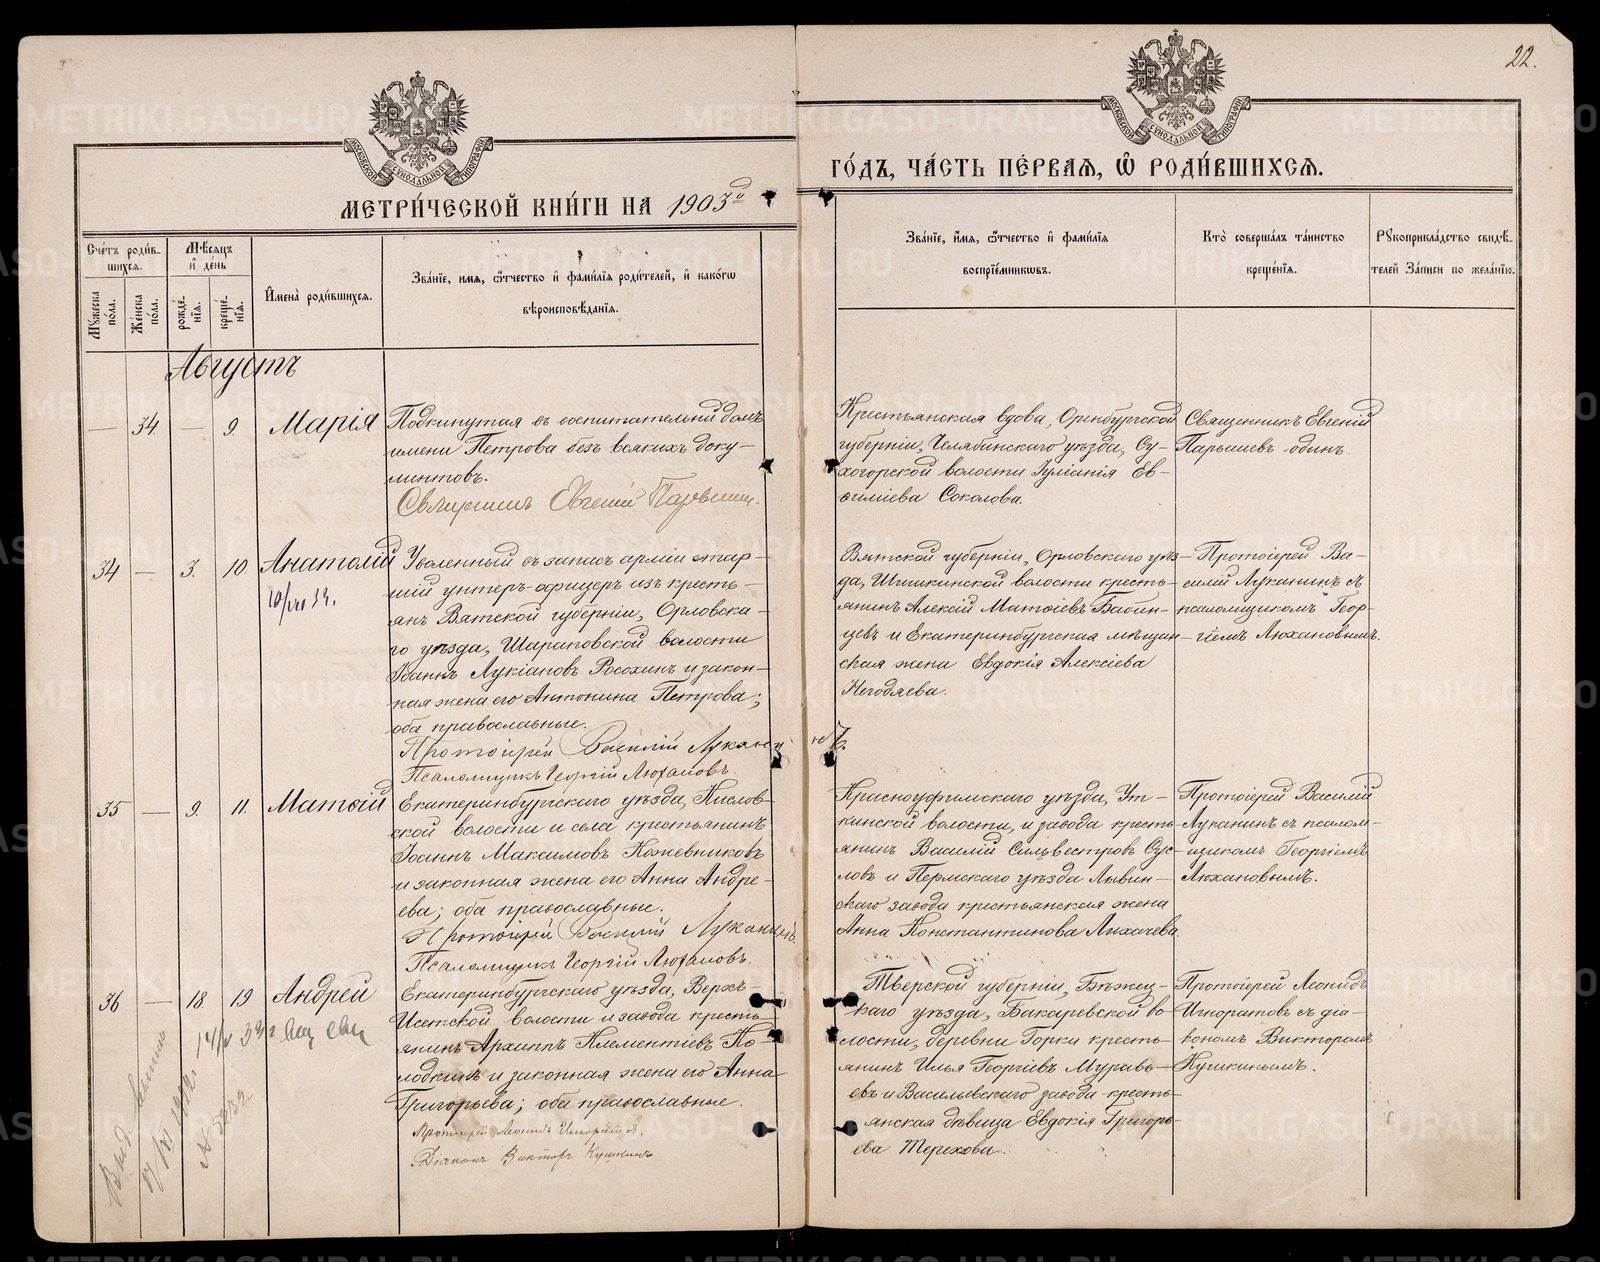 22.
МОСКОВСКОЙ СѴНОДАЛЬНОЙ ТИПОГРАФІИ
МОСКОВСКОЙ СѴНОДАЛЬНОЙ ТИПОГРАФІИ
МЕТРИ́ЧЕСКОЙ КНИ́ГИ НА 1903й
ГО́ДЪ, ЧА́СТЬ ПЕ́РВАЯ, Ѡ РОДИ́ВШИХСЯ.
Сче́тъ роди́в-
шихся.
Му́жеска
по́ла.
Же́нска
по́ла.
Мѣ́сяцъ
и҆ де́нь
рожде́-
нїѧ.
креще́-
нїѧ.
И҆мена̀ роди́вшихся.
Зва́нїе, и́мѧ, ѻ҆́тчество и҆ фами́лїѧ роди́телей, и҆ како́гѡ
вѣроисповѣ́данїѧ.
Зва́нїе, и҆́мѧ, ѻ҆́тчество и҆ фами́лїѧ
воспрїе́мникѡвъ.
Кто̀ соверша́лъ та́инство
креще́нїѧ.
Рꙋкоприкла́дство свидѣ́-
телей За́писи по жела́нїю.
Августъ
— 34. — 9. Марія
Подкинутая въ воспитательный домъ
имени Петрова безъ всякихъ доку-
ментовъ.
Священникъ Евгеній
Крестьянская вдова, Оренбургской
губерніи, Челябинскаго уѣзда, Су-
хогорской волости Іуліанія Ев-
ѳиміева Соколова.
Священникъ Евгеній
одинъ.
34 — 3. 10. Анатолій
Уволенный въ запасъ арміи стар-
шій унтеръ-офицеръ изъ кресть-
янъ Вятской губерніи, Орловска-
го уѣзда, Шараповской волости
Іоаннъ Лукіановъ Росохинъ и закон-
ная жена его Антонина Петрова;
оба православные.
Протоіерей Василій Луканинъ
Псаломщикъ Георгій Люхановъ
Вятской губерніи, Орловскаго уѣз-
да, Шишкинской волости кресть-
янинъ Алексій Матѳіевъ Бабин-
цевъ и Екатеринбургская мѣщан-
ская жена Евдокія Алексіева
Негодяева.
Протоіерей Ва-
силій Луканинъ съ
псаломщикомъ Геор-
гіемъ Люхановымъ.
35 — 9. 11. Матѳій
Екатеринбургскаго уѣзда, Кислов-
ской волости и села крестьянинъ
Іоаннъ Максимовъ Кожевниковъ
и законная жена его Анна Андре-
ева; оба православные.
Протоіерей Василій Луканинъ
Псаломщикъ Георгій Люхановъ.
Красноуфимскаго уѣзда, Ут-
кинской волости, и завода кресть-
янинъ Василій Сильвестровъ Сус-
ловъ и Пермскаго уѣзда Лысвин-
скаго завода крестьянская жена
Анна Константинова Лихачева.
Протоіерей Василій
Луканинъ съ псалом-
щикомъ Георгіемъ
Люхановымъ.
36 — 18. 19 Андрей
Екатеринбургскаго уѣзда, Верхъ-
Исетской волости и завода кресть-
янинъ Архиппъ Клементіевъ Ко-
лодкинъ и законная жена его Анна
Григорьева; оба православные.
Протоіерей Леонидъ Игноратовъ.
Діаконъ Викторъ Кушкинъ
Тверской губерніи, Бѣжец-
каго уѣзда, Бакаревской во-
лости, деревни Горки кресть-
янинъ Илья Георгіевъ Муравь-
евъ и Васильевскаго завода кресть-
янская дѣвица Евдокія Григорь-
ева Терехова.
Протоіерей Леонидъ
Игноратовъ съ діа-
кономъ Викторомъ
Кушкинымъ.
METRIKI.GASO-URAL.RU